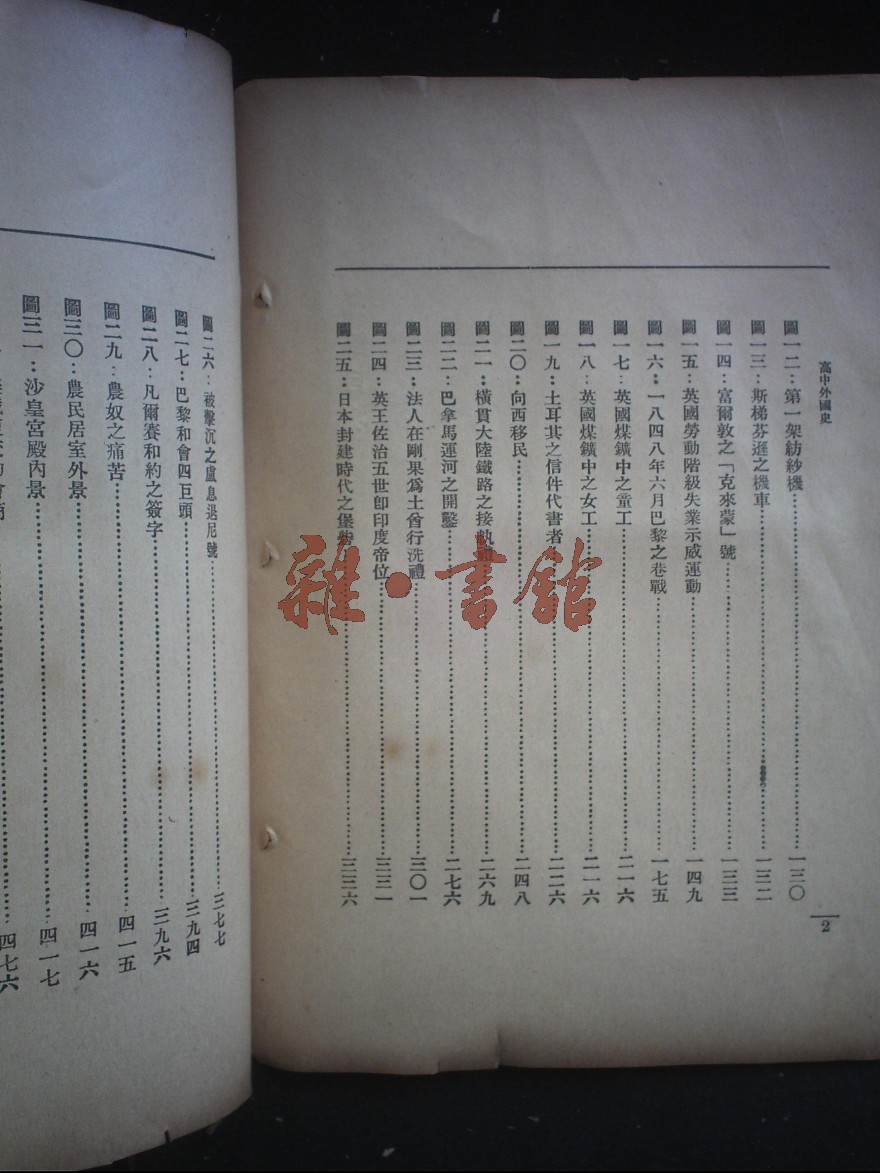 高中外國史
圖一二：第一架紡紗機……一三〇
圖一三：斯梯芬遜之機車……一三二
圖一四：富爾敦之「克來蒙」號……一三三
圖一五：英國勞動階級失業示威運動……一四九
圖一六：一八四八年六月巴黎之巷戰……一七五
圖一七：英國煤鑛中之童工……二一六
圖一八：英國煤鑛中之女工……二一六
圖一九：土耳其之信件代書者……二二六
圖二〇：向西移民……二四八
圖二一：橫貫大陸鐵路之接軌……二六九
圖二二：巴拿馬運河之開鑿……二七六
圖二三：法人在剛果爲土酋行洗禮……三〇一
圖二四：英王佐治五世卽印度帝位……三三一
圖二五：日本封建時代之堡……三三六
2
圖二六：被擊沉之盧息退尼號……三七七
圖二七：巴黎和會四巨頭……三九四
圖二八：凡爾賽和約之簽字……三九六
圖二九：農奴之痛苦……四一五
圖三〇：農民居室外景……四一六
圖三一：沙皇宮殿內景……四一七
四七六
雜·書館